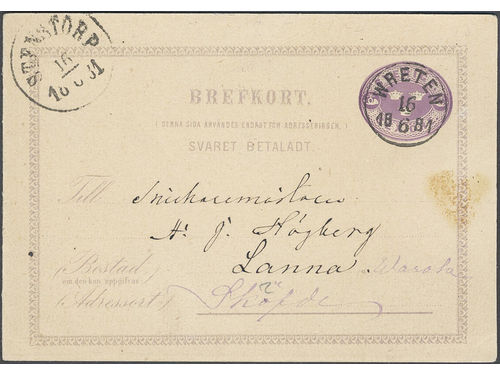 STENSTORP
16
18 6 81
WRETEN
16
18 6 81
BREFKORT.
( DENNA SIDA ANVÄNDES ENDAST FÖR ADRESSERINGEN. )
SVARET BETALADT.
Till Snickaremästaren
A. J. Högberg
(Bostad Lanna
om den kan uppgifvas)
(Adressort) Sköfde